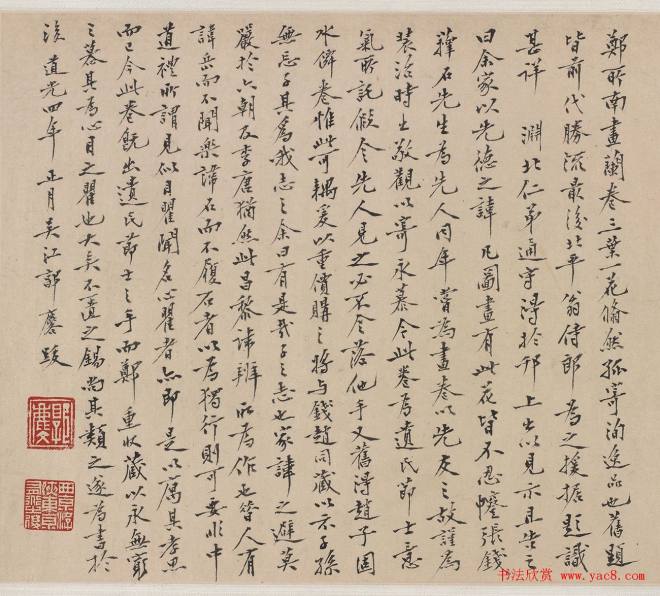 鄭所南畫蘭卷三葉一花翛然孤寄洵逸品也舊題
皆前代勝流最後北平翁侍郎為之援据題識
甚詳淵北仁弟通守得於邗上出以見示且告之
曰余家以先德之諱凡圖畫有此花皆不忍幛張錢
蘀石先生為先人同年嘗為畫卷以先友之故謹為
裝治時出敬觀以寄永慕今此卷為遺民節士意
氣所託假令先人見之必不令落他手又舊得趙子固
水僊卷惟此可耦爰以重價購之將與錢趙同藏以示子孫
無忘子其為我志之余曰有是哉子之志也家諱之避莫
嚴於六朝及李唐猶然此昌黎諱辨所為作也昔人有
諱岳而不聞樂諱石而不履石者以為獨行則可要非中
道禮所謂見似目瞿聞名心瞿者亦即是以厲其孝思
而已今此卷既出遺民節士之手而鄭重收藏以永無窮
之慕其為心目之瞿也大矣不匱之錫尚其類之遂為書於
後道光四年正月吳江郭麐跋
书法欣赏 www.yac8.com